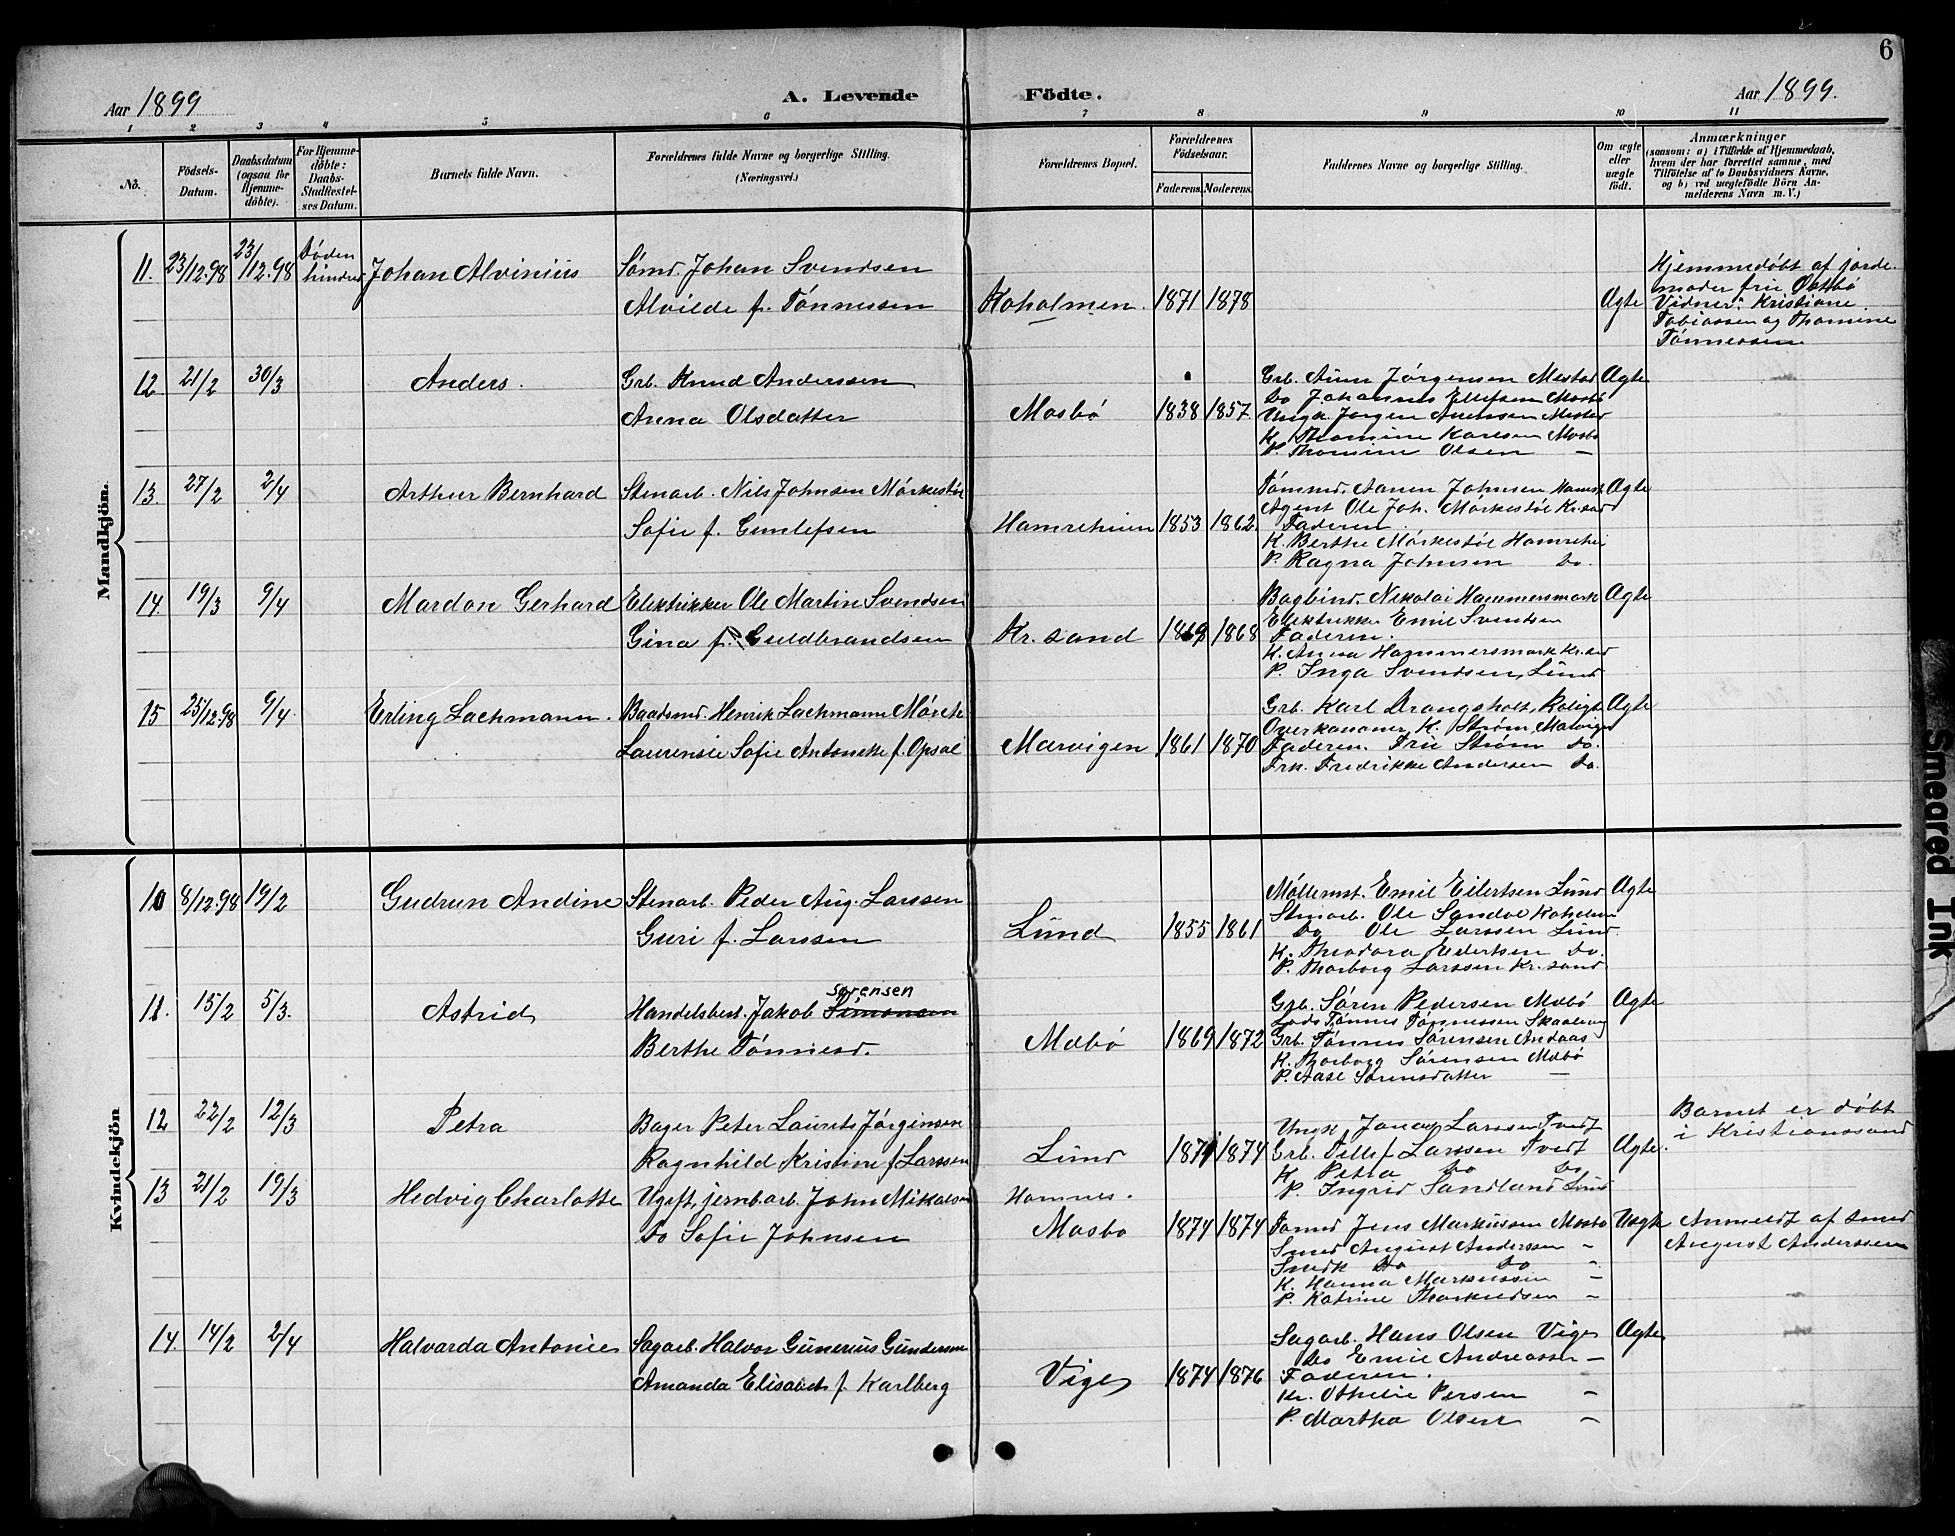 6
Aar 1899
A. Levende
Födte.
Aar 1899.
1 2 3 4 5 6 7 8 9 10 11
No.
Födsels-Datum.
Daabsdatum (ogsaa for Hjemme-döbte).
For Hjemme-döbte: Daabs-Stadfæstel-ses Datum.
Barnets fulde Navn.
Forældrenes fulde Navne og borgerlige Stilling. (Næringsvei.)
Forældrenes Bopæl.
Forældrenes Födselsaar.
Faderens. Moderens.
Faddernes Navne og borgerlige Stilling.
Om ægte eller uægte födt.
Anmærkninger
(saasom: a) i Tilfælde af Hjemmedaab, hvem der har forrettet samme, med Tilföielse af to Daabsvidners Navne, og b) ved uægtefödte Börn Anmelderens Navn m. V.)
Mandkjön.
11. 23/12.98 23/12.98 Døden hindred Johan Alvinius
Sømd. Johan Svendsen
Alvilde f. Tønnessen
Koholmen. 1871 1878
Ægte
Hjemmedøbt af jorde-
moder fru
Vidner: Kristiane
Tobiassen og Thomine
Tønnessen
12 21/2 30/3 Anders.
Grb. Knud Anderssen
Anna Olsdatter
Mosbö 1838 1857
Grb. Aun Jörgensen Mestad Ægte
Do Johannes Ellefsen Mosbö
Ungk. Jörgen Aunensen Mestad
K. Thomine Karlsen Mosbö
P. Thomine Olsen —
13. 27/2 2/4 Arthur Bernhard
Stenarb. Nils Johnsen Mörkestöl
Sofie f. Gunlefsen
Hamreheien 1853 1862
Tömmd. Aanen Johnsen Ægte
Agent Ole Joh. Mörkestöl Kr.sand
Faderen.
K. Berthe Mörkestöl Hamrehei
P. Ragna Johnsen Do.
14. 19/3 9/4 Mardon Gerhard
Elektrikker Ole Martin Svendsen
Gina f. Guldbrandsen
Kr. sand 1869 1868
Bogbind. Nikolai Hammersmark Ægte
Elektrikker Emil Svendsen
Faderen.
K. Anna Hammersmark Kr.sand
P. Inga Svendsen, Lund
15 25/12.98 9/4 Erling Lachmann.
Baadsmd. Henrik Lachmann Mörch
Laurensie Sofie Antonette f. Opsal
Marvigen 1861 1870
Grb. Karl Drangsholt, Koligh Ægte
Overkanoner K. Ström Marvigen
Faderen. Fru Ström Do.
Frk. Fredrikke Andersen Do.
Kvindekjön
10 8/12.98 19/2 Gudrun Andine
Stenarb. Peder Aug. Larssen
Guri f. Larssen
Lund 1855 1861
Möllermst. Emil Eilertsen Lund Ægte
Stenarb. Ole Sandal Koholmen
Do Ole Larssen Lund.
K. Theodora Eilertsen Do.
P. Thorborg Larssen Kr. sand
11. 15/2 5/3. Astrid
Sørensen
Handelsbest. Jakob Simonsen
Berthe Tönnesd.
Mæbö 1869 1872
Grb. Sören Pedersen Mæbö Ægte
Lods Tönnes Tönnessen Skaalevig
Grb. Tönnes Sörensen Andaas
K. Thorborg Sörensen Mæbö
P. Aase Sörensdatter —
12 22/2 12/3 Petra
Bager Peter Laurits Jörginsen
Ragnhild Kristine f. Larssen
Lund 1874 1874
Ungk. Larssen Tvedt
Grb. Tellef Larssen Tvedt Ægte.
K. Petra Do Do
P. Ingrid Sandland Lund
Barnet er døbt
i Kristianssand
13 21/2 19/3 Hedvig Charlotte
Ugift, jernbarb. John Mikalsen
Do Sofie Johnsen
Homnes.
Mosbö 1874 1874
Tömmd Jens Markussen Mosbö Uægte
Smed August Anderssen -
Smedk Do Do -
K. Hanna Markussen —
P. Katrine Thorkildsen -
Anmeldt af smed
August Anderssen
14. 14/2 2/4 Halvarda Antonie
Sagarb. Halvor Gunerius Gundersen
Amanda Elisabeth f. Karlberg
Vige 1874 1876
Sagarb. Hans Olsen Vige Ægte
Do Emil Andreassen —
Faderen.
K. Othelie Persen —
P. Martha Olsen —
Smeared Ink